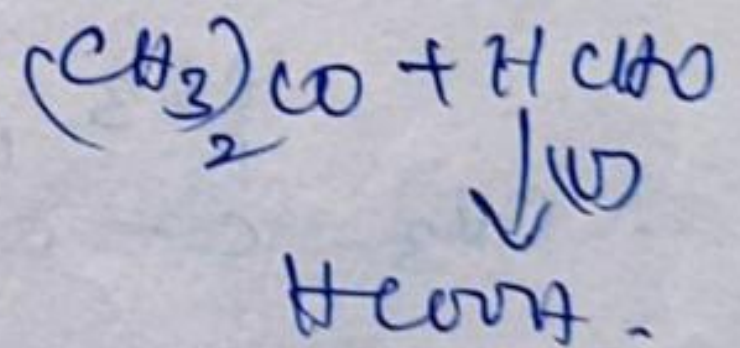 (CH₃)₂CO + HCHO
↓(U)
HCOOH.